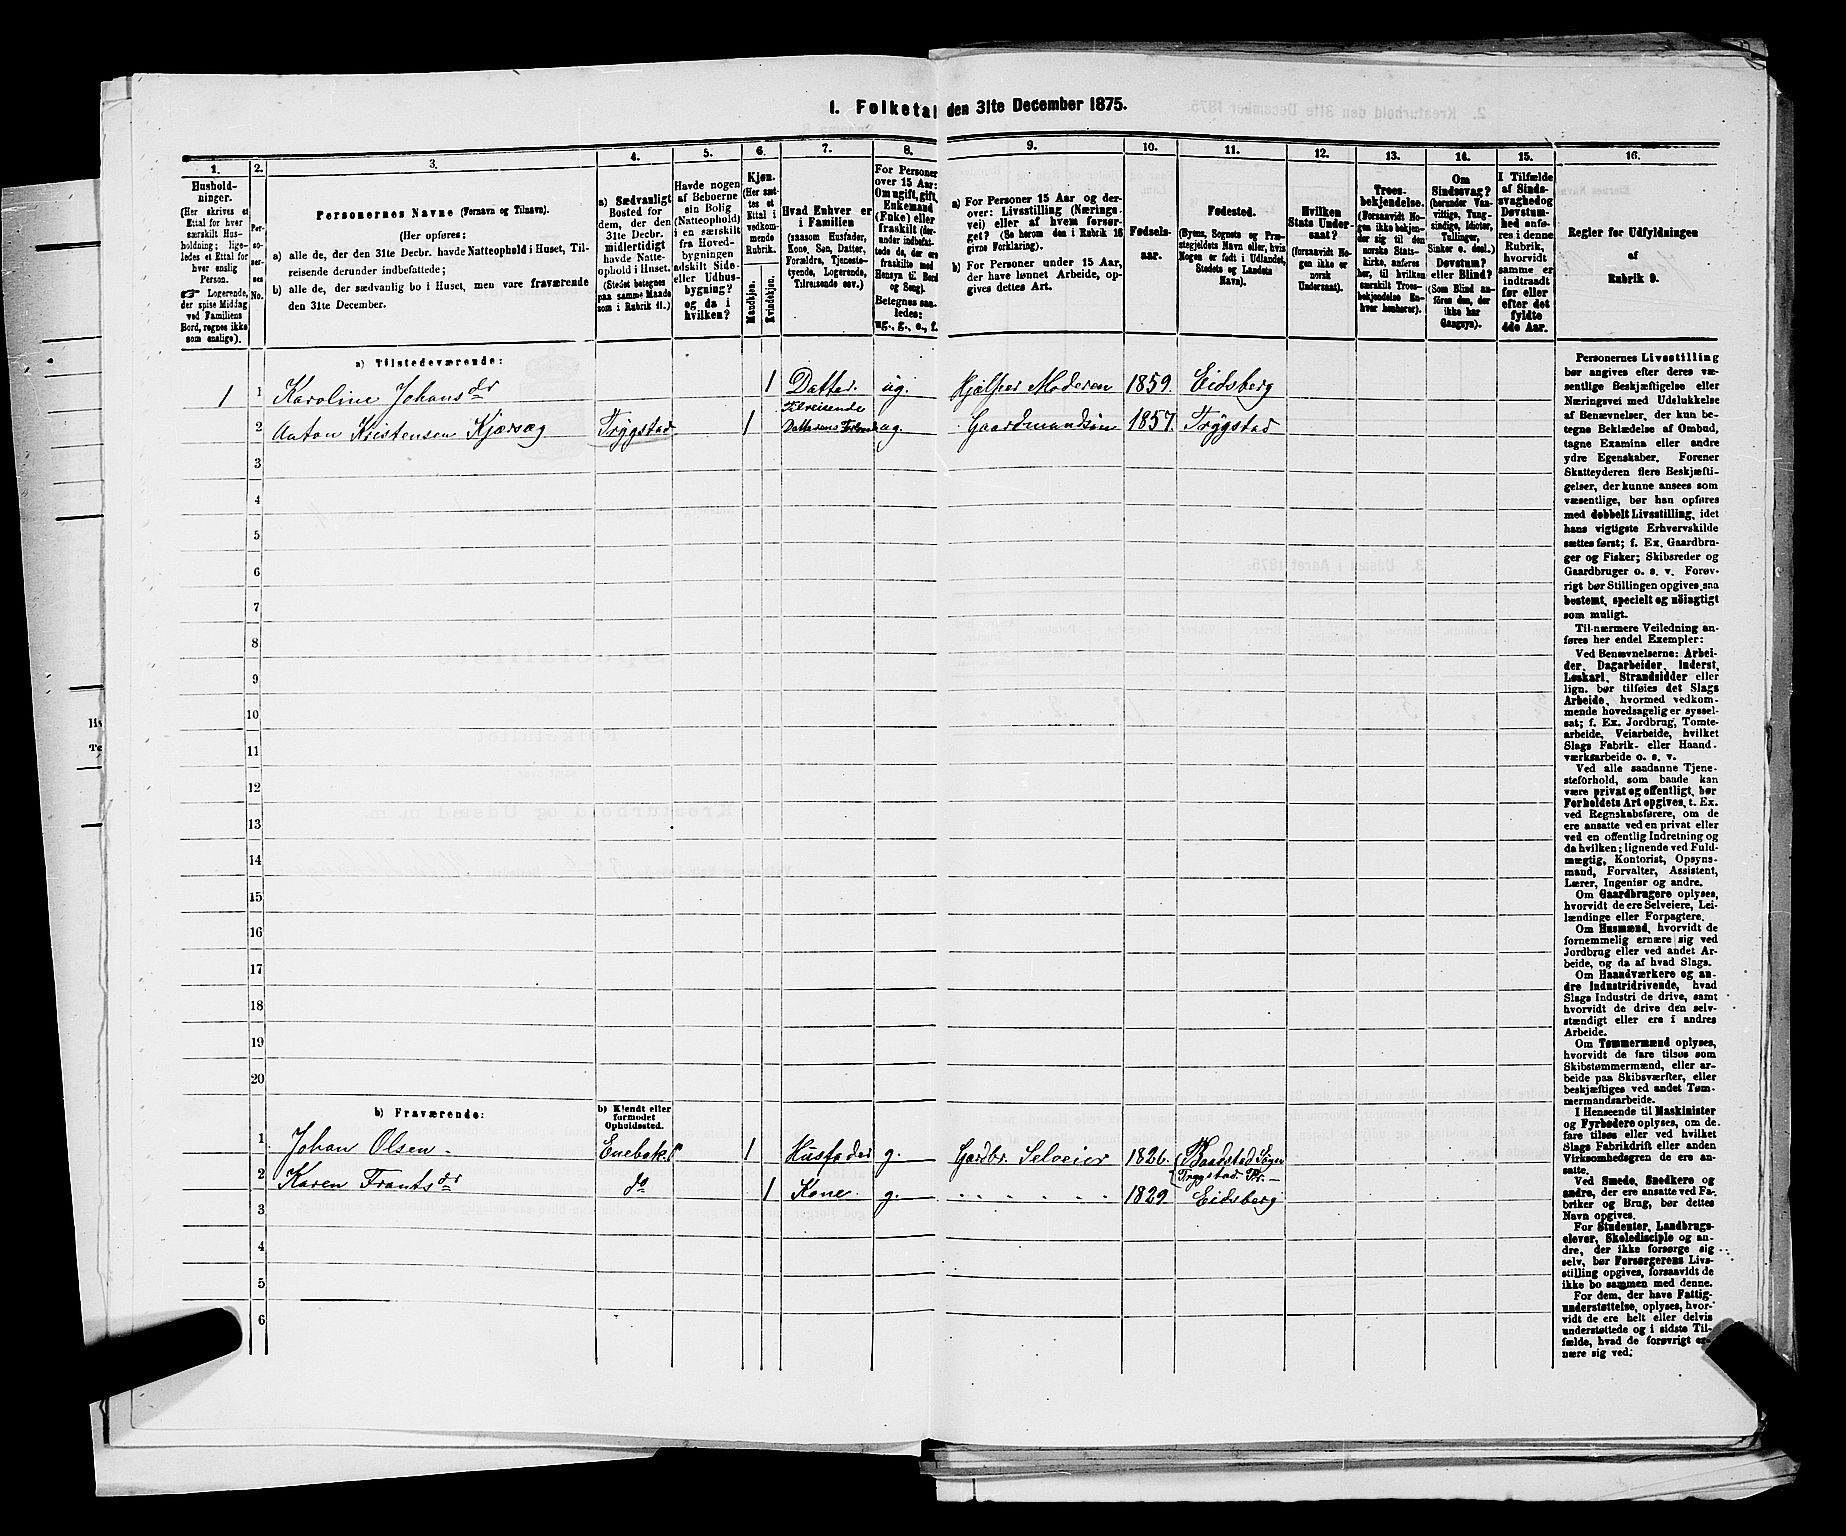 1. Folketal den 31te December 1875.
1.
2.
3.
4.
5.
6.
7.
8.
9.
10.
11.
12.
13.
14.
15.
16.
Hushold-
ninger.
(Her skrives et
Ettal for hver
særskilt Hus-
holdning; lige-
ledes et Ettal for
hver enslig
Person.
☞ Logerende,
der spise Middag
ved Familiens
Bord, regnes ikke
som enslige).
Per-
so-
ner-
nes
No.
Personernes Navne (Fornavn og Tilnavn).
(Her opføres:
a) alle de, der den 31te Decbr. havde Natteophold i Huset, Til-
reisende derunder indbefattede;
b) alle de, der sædvanlig bo i Huset, men vare fraværende
den 31te December.
a) Sædvanligt
Bosted for
dem, der den
31te Decbr.
midlertidigt
havde Natte-
ophold i Huset.
(Stedet betegnes
paa samme Maade
som i Rubrik 11.)
Havde nogen
af Beboerne
sin Bolig
(Natteophold)
i en særskilt
fra Hoved-
bygningen
adskilt Side-
eller Udhus-
bygning?
og da i
hvilken?
Kjøn.
(Her sæt-
tes et
Ettal i
vedkom-
mende
Rubrik.
Mandkjøn.
Kvindekjøn.
Hvad Enhver er
i Familien
(saasom Husfader,
Kone, Søn, Datter,
Forældre, Tjeneste-
tyende, Logerende,
Tilreisende osv.)
For Personer
over 15 Aar:
Om ugift, gift,
Enkemand
(Enke) eller
fraskilt (der-
under indbefat-
tede de, der ere
fraskilte med
Hensyn til Bord
og Seng).
Betegnes saa-
ledes:
ug., g., e., f.
a) For Personer 15 Aar og der-
over: Livsstilling (Nærings-
vei) eller af hvem forsør-
get? (Se herom den i Rubrik 16
givne Forklaring).
b) For Personer under 15 Aar,
der have lønnet Arbeide, op-
gives dettes Art.
Fødsels-
aar.
Fødested.
(Byens, Sognets og Præ-
stegjeldets Navn eller, hvis
Nogen er født i Udlandet,
Stedets og Landets
Navn).
Hvilken
Stats Under-
saat?
(forsaavidt No-
gen ikke er
norsk
Undersaat).
Troes-
bekjendelse.
(Forsaavidt No-
gen ikke bekjen-
der sig til den
norske Stats-
kirke, anføres
her, til hvilken
særskilt Troes-
bekjendelse En-
hver henhører).
Om
Sindssvag?
(herunder Van-
vittige, Tung-
sindige, Idioter,
Tullinger,
Sinker o. desl.)
Døvstum?
eller Blind?
(Som Blind an-
føres den, der
ikke har
Gangsyn).
I Tilfælde
af Sinds-
svaghed og
Døvstum-
hed anfø-
res i denne
Rubrik,
hvorvidt
samme er
indtraadt
før eller
efter det
fyldte
4de Aar.
Regler for Udfyldningen
af
Rubrik 9.
a) Tilstedeværende:
1 1 Karoline Johansdr 1 Datter. ug. Hjælper Moderen 1859. Eidsberg
Tilreisende
2 Anton Kristensen Kjærsag Trygstad 1 Datterens ug. Gaardmandssøn 1857. Trygstad
3
4
5
6
7
8
9
10
11
12
13
14
15
16
17
18
19
20
b) Fraværende:
b) Kjendt eller
formodet
Opholdssted.
1 Johan Olsen - Enebak 1 Husfader g. Gardbr. Selveier 1826. Baadstad Sogn
Trygstad Pr. -
2 Karen Frantsdr do 1 Kone. g. " " " " " " 1829. Eidsberg
3
4
5
6
Personernes Livsstilling
bør angives efter deres væ-
sentlige Beskjæftigelse eller
Næringsvei med Udelukkelse
af Benævnelser, der kun be-
tegne Beklædelse af Ombud,
tagne Examina eller andre
ydre Egenskaber. Forener
Skatteyderen flere Beskjæfti-
gelser, der kunne ansees som
væsentlige, bør han opføres
med dobbelt Livsstilling, idet
hans vigtigste Erhvervskilde
sættes først; f. Ex. Gaardbru-
ger og Fisker; Skibsreder og
Gaardbruger o. s. v. Forøv-
rigt bør Stillingen opgives saa
bestemt, specielt og nöiagtigt
som muligt.
Til nærmere Veiledning an-
føres her endel Exempler:
Ved Benævnelserne: Arbei-
der, Dagarbeider, Inderst,
Løskarl, Strandsidder eller
lign. bør tilføies det Slags
Arbeide, hvormed vedkom-
mende hovedsagelig er syssel-
sat; f. Ex. Jordbrug, Tomte-
arbeide, Veiarbeide, hvilket
Slags Fabrik- eller Haand-
værksarbeide o. s. v.
Ved alle saadanne Tjene-
steforhold, som baade kan
være privat og offentligt, bør
Forholdets Art opgives, t. Ex.
ved Regnskabsførere, om de
ere ansatte ved en privat eller
ved en offentlig Indretning og
da hvilken; lignende ved Fuld-
mægtig, Kontorist, Opsyns-
mand, Forvalter, Assistent,
Lærer, Ingeniør og andre.
Om Gaardbrugere oplyses,
hvorvidt de ere Selveiere, Lei-
lændinge eller Forpagtere.
Om Husmænd, hvorvidt de
fornemmelig ernære sig ved
Jordbrug eller ved andet Ar-
beide, og da af hvad Slags.
Om Haandværkere og an-
dre Industridrivende, hvad
Slags Industri de drive, samt
hvorvidt de drive den selv-
stændigt eller ere i andres
Arbeide.
Om Tømmermænd oplyses,
hvorvidt de fare tilsøs som
Skibstømmermænd, eller ar-
beide paa Skibsværfter, eller
beskjæftiges ved andet Tøm-
mermandsarbeide.
I Henseende til Maskinister
og Fyrbødere oplyses, om de
fare tilsøs eller ved hvilket
Slags Fabrikdrift eller anden
Virksomhedsgren de ere an-
satte.
Ved Smede, Snedkere og
andre, der ere ansatte ved Fa-
briker og Brug, bør dettes
Navn opgives.
For Studenter, Landbrugs-
elever, Skoledisciple og an-
dre, der ikke forsørge sig
selv, bør Forsørgerens Livs-
stilling opgives, forsaavidt de
ikke bo sammen med denne.
For dem, der have Fattig-
understøttelse, oplyses, hvor-
vidt de ere helt eller delvis
understøttede og i sidste Til-
fælde, hvad de forøvrigt er-
nære sig ved.